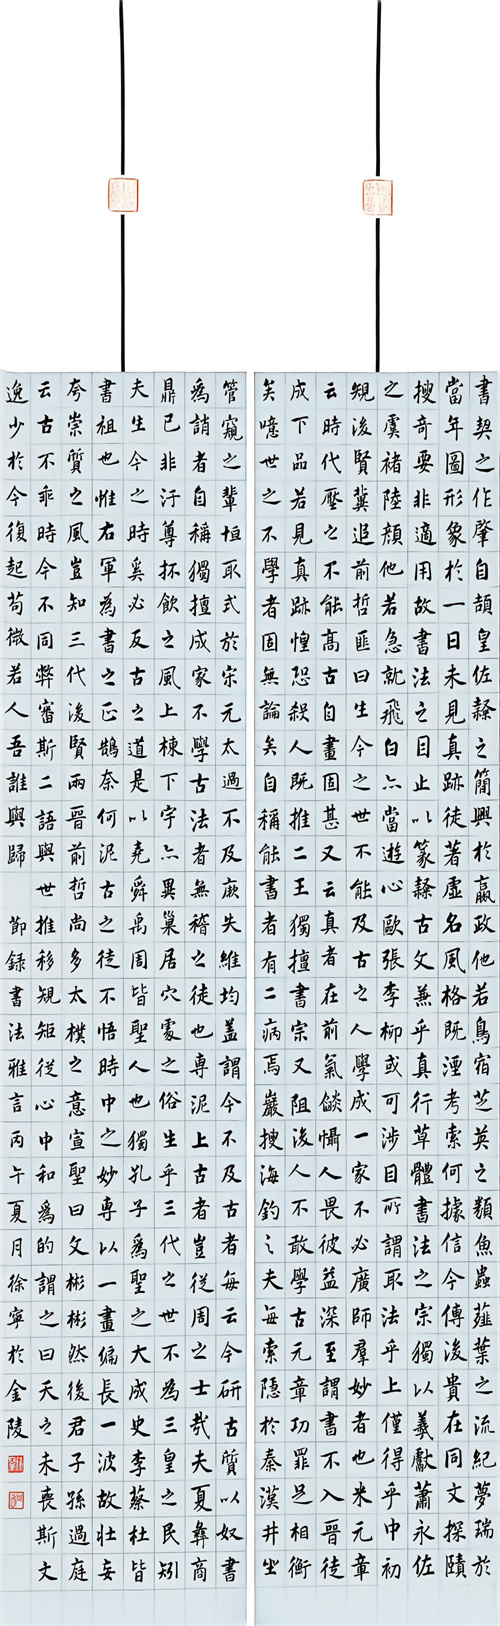 書契之作肇自頡皇佐隸之簡興於嬴政他若鳥宿芝英之類魚蟲薤葉之流紀夢瑞於
當年圖形象於一日未見真跡徒著虛名風格既湮考索何據信今傳後貴在同文探賾
搜奇要非適用故書法之目止以篆隸古文兼乎真行草體書法之宗獨以羲獻蕭永佐
之虞褚陸顏他若急就飛白亦當遊心歐張李柳或可涉目所謂取法乎上僅得乎中初
規後賢冀追前哲匪曰生今之世不能及古之人學成一家不必廣師羣妙者也米元章
云時代壓之不能高古自畫固甚又云真者在前氣燄懾人畏彼益深至謂書不入晉徒
成下品若見真跡惶恐殺人既推二王獨擅書宗又阻後人不敢學古元章功罪足相衡
矣噫世之不學者固無論矣自稱能書者有二病焉巖搜海釣之夫每索隱於秦漢井坐
管窺之輩恒取式於宋元太過不及厥失維均蓋謂今不及古者每云今研古質以奴書
為誚者自稱獨擅成家不學古法者無稽之徒也專泥上古者豈從周之士哉夫夏彝商
鼎已非汙尊抔飲之風上棟下宇亦異巢居穴處之俗生乎三代之世不為三皇之民矧
夫生今之時奚必反古之道是以堯舜禹周皆聖人也獨孔子為聖之大成史李蔡杜皆
書祖也惟右軍為書之正鵠奈何泥古之徒不悟時中之妙專以一畫偏長一波故壯妄
夸崇質之風豈知三代後賢兩晉前哲尚多太樸之意宣聖曰文彬彬然後君子孫過庭
云古不乖時今不同弊審斯二語與世推移規矩從心中和為的謂之曰天之未喪斯文
逸少於今復起苟微若人吾誰與歸 節錄書法雅言丙午夏月徐寧於金陵